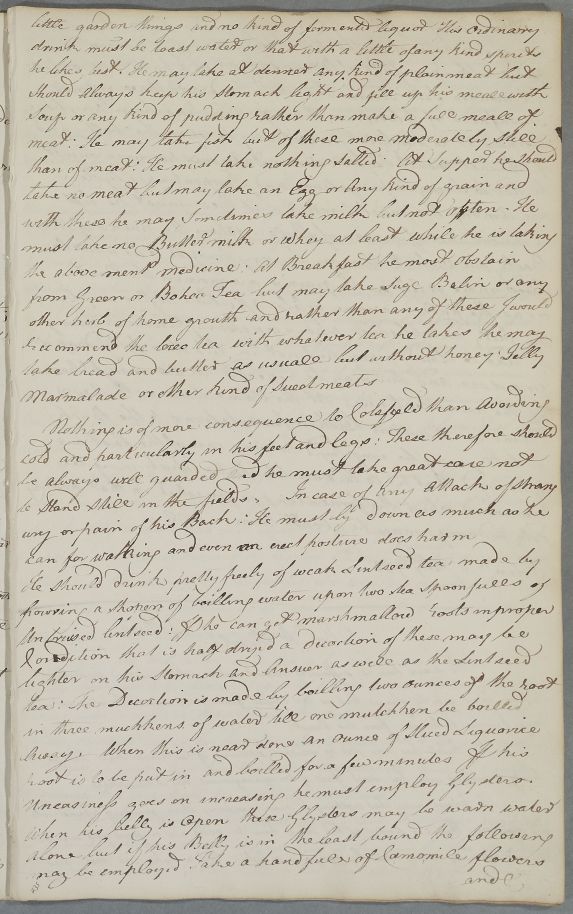 little garden things and no kind of fermented liquor His ordinary
drink must be toast water or that with a little of any kind spirits
he likes best. He may take at denner any kind of plain meat but
should always keep his stomach light and fill up his meale with
Soup or any kind of pudding rather than make a full meale of
meat: He may take fish but of these more moderately still
than of meat: He must take nothing salted: At Supper he should
take no meat but may take an Egg or Any kind of grain and
with these he may Sometimes take milk but not often. He
must take no Butter milk or whey at least while he is taking
the above mentd medicine: at Breakfast he most obstain
from Green or Bohea Tea but may take Sage Balm or any
other herb of home grouth and rather than any of these I would
recommend the Coco tea with whatever tea he takes he may
take bread and butter as usuale but without honey Jelly
Marmalade or other kind of Sweatmeats
Nothing is of more consequence to Colesfeld than Avoiding
cold and particularly in his feet and legs: These therefore should
be always well guarded and he must take great care not
to Stand Still in the fields. In case of any Attack of Strang
ury or pain of his Back: He must ly down as much as he
can for walking and even an erect posture does harm
He should drink pretty freely of weak Lintseed tea made by
Powring a chopen of boilling water upon two tea Spoonfulls of
Unbruised lintseed: If he can get marshmallow roots in proper
Condition that is half dryed a decoction of these may be
lighter on his Stomach and Answer as well as the Lintseed
tea: The Decoction is made by boilling two ounces of the root
in three muchkens of water till one mutchken be boilled
Away. When this is near done an ounce of Sliced Liquorice
root is to be put in and boilled for a few minutes If his
Uneasiness goes on increasing he must employ Glysters.
When his belly is Open these Glysters may be warm water
Alone but if his Belly is in the least bound the following
may be employed Take a handfull of Camomile flowers
and